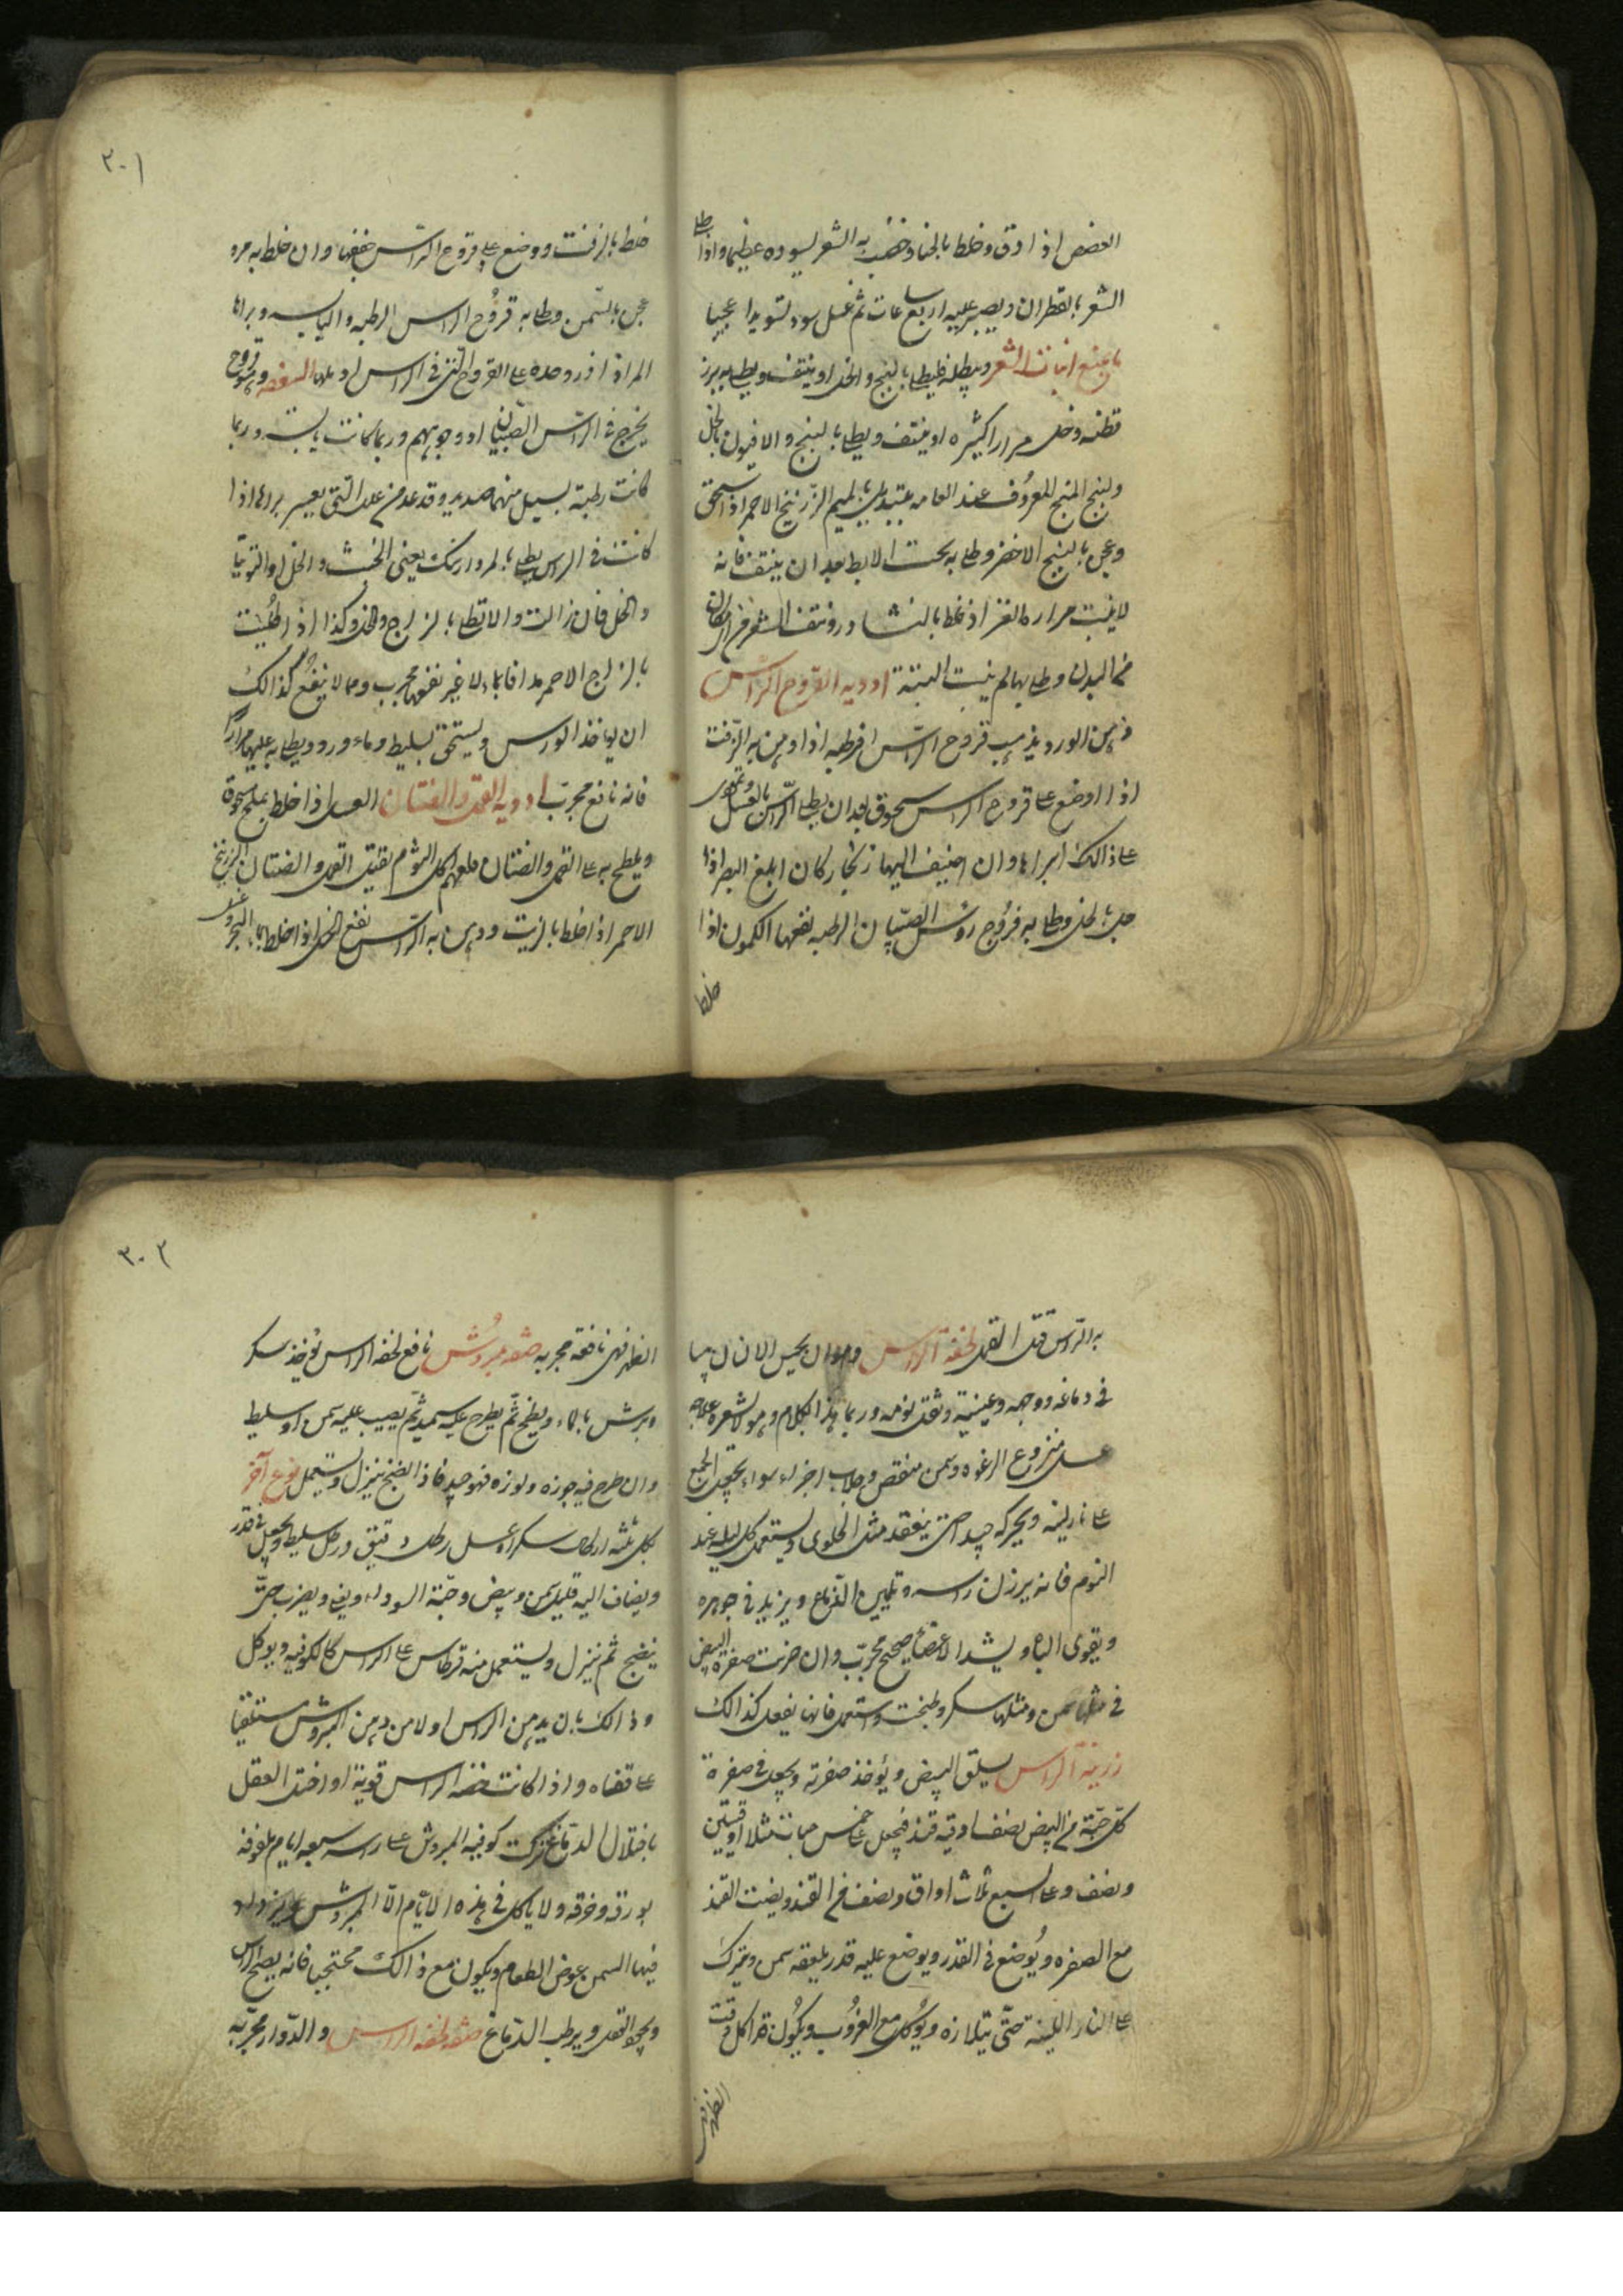 العفص اذا دق وخلط بالحنا وخضب به الشعر يسوده عظيما واذا طلا
الشعر بالقطران ويصبر عليه اربع ساعات ثم غسل سود تسويدا عجيبا
ما يمنع انبات الشعر ويبطله فليطلا بالبنج والخل او ينتف ويطلا ببزر
قطنه وخل مرارا كثيره او ينتف ويطلا بالبنج والافيون بالخل
ولبنج المنج المعروف عند العامه الزرنيخ الاحمر اذا سحق
وعجن بالبنج الاخضر وطلا به تحت الابط بعد ان ينتف فانه
لا ينبت مراره العنز اذ خلطا بالنشادر ونتف الشعر من اى مكان
من البدن وطلا بها لم ينبت البتة ادويه القروح الراس
دهن الورد يذهب قروح الراس الرطبه اذا دهن به الزفت
اذا اوضع على قروح الراس مسحوق بعد ان يطلا الراس بالعسل
على ذالك ابراها وان اضيف اليها زنجار كان ابلغ البصر اذا
بالخل وطلا به قروح روس الصبيان الرطبه نفعها الكمون اذا
خلط
٣٠١
خلط بالزفت ووضع على قروح الراس جففها وان خلط به مرو
عجن بالسمن وطلا به قروح الراس الرطبه واليابسه وبراها
المر اذا ذر وحده على القروح التى فى الراس اوبلها السعفه وهى قروح
يخرج فى الراس الصبيان او وجوههم وربما كانت يابسة وربما
كانت رطبة يسيل منها صديد وقد عد من علل التى يعسر براها اذا
كانت فى الراس يطلا بالمرداسنك يعنى الخبث والخل او التوتيا
والخل فان زالت والا تطلا بالزاج والخل وكذا اذا طليت
بالزاج الاحمر مدافا بماء لا غير نفعها مجرب ومما لا ينفع كذالك
ان يوخذ الورس ويسحق بسليط وماء ورد ويطلا به عليها مرارا
فانه نافع مجرب ادويه القمل والصئبان العسل اذا خلط بملح مسحوق
ويلطخ به على القمل والصئبان قلعهم اكل الثوم يقتل القمل والصئبان الزرنيخ
الاحمر اذا خلط بالزيت ودهن به الراس نفع الخل اذا خلط بماء البحر وغسل
به الراس قتل القمل لخفة الراس وهو ان يحس الانسان
فى دماغه ووجهه وعينيه وثقل نومه وربما هذا الكلام وهو لا يشعر علاجه
عسل منزوع الرغوه وسمن منقص وجلاب اجزاء سواء يجعل الجميع
على نار لينه ويحركه جيدا حتى ينعقد مثل الحلوى ويستعمل كل ليله عند
النوم فانه يرزن راسه ويلين الدماغ ويزيد فى جوهره
ويقوى الباه ويشد الاعضاء صحيح مجرب وان ضربت صفرة البيض
فى مثلها سمن ومثلها سكر وطبخت واستعمل فانها يفعل كذالك
رزينة الراس يسلق البيض ويؤخذ صفرته ويجعل فى صفرة
كل حبة من البيض نصف اوقيه قند فيجعل على خمس حبات مثلا اوقيتين
ونصف وعلى السبع ثلاث اواق ونصف من القند ويضت القند
مع الصفره ويوضع فى القدر ويوضع عليه قدر ملعقه سمن ويترك
على النار اللينه حتى يتلازه ويؤكل مع الغروب ويكون قد اكل وقت
الظهر فهى
٣٠٢
الظهر فهى نافعة مجربه صفه مبروش نافع لخفه الراس يوخذ سكر
ويرش بالماء ويطبخ ثم يطرح عليه سميد ثم يصيب عليه سمن او سليط
وان طرح فيه جوزه ولوزه فهو جيد فاذا انضج ينزل ويستعمل نوع آخر
بكل ثلثه ارطال سكر او عسل رطل دقيق ورطل سليط ويجعل فى قدر
ويضاف اليه قليل سمن وبيض وحبة السوداء ويضرب حتى
ينضج ثم ينزل ويستعمل منه قرطاس على الراس كالكوفيه ويوكل
وذالك بان يدهن الراس اولا من دهن المبروش مستلقيا
على قفاه واذا كانت خفه الراس قوية او اختل العقل
باختلال الدماغ تركت كوفيه المبروش على راسه سبعه ايام ملفوفه
بورقه وخرقه ولا ياكل فى هذه الايام الا المبروش ويزداد
فيها السمن عوض الطعام ويكون مع ذالك محتجبا فانه يصلح الراس
ويجود العقل ويرطب الدماغ صفه لخفه الراس والدوار مجربه